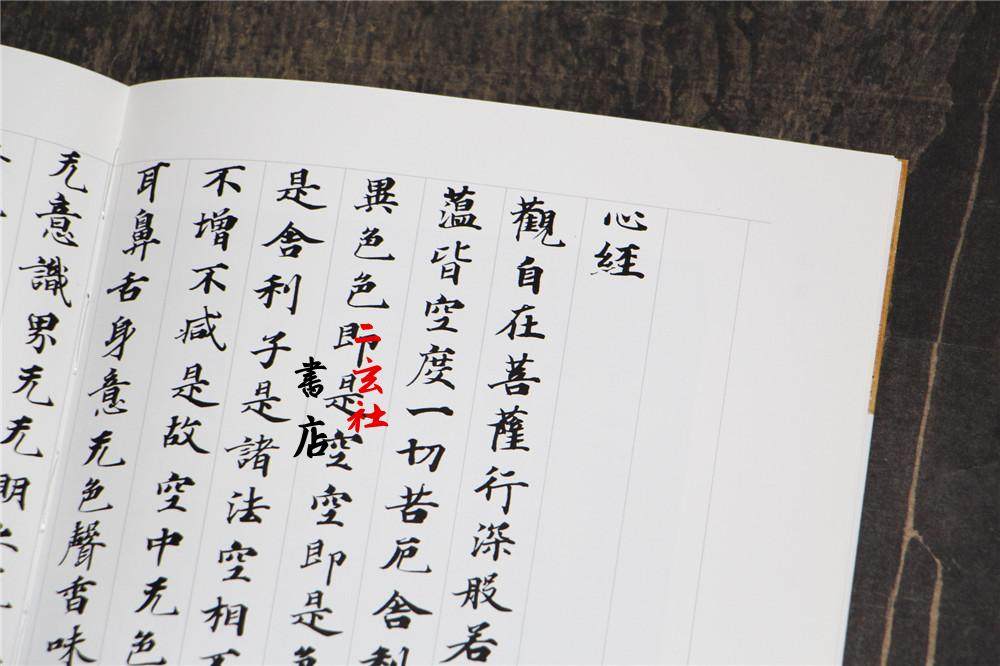 心經
觀自在菩薩行深般若
蘊皆空度一切苦厄舍利
異色色即是空空即是色
是舍利子是諸法空相不
不增不减是故空中无色
耳鼻舌身意无色聲香味
无意識界无无明
二玄社
書店